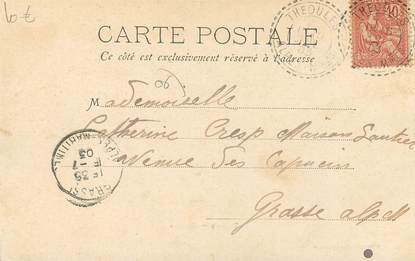 10 €
THEOULE
CARTE POSTALE
Ce côté est exclusivement réservé à l'adresse
06
Mademoiselle
Catherine Cresp Maison Lautier
Avenue des Capucin
Grasse alp M
GRASSE
ALPES-MARITIMES
15 -1
03